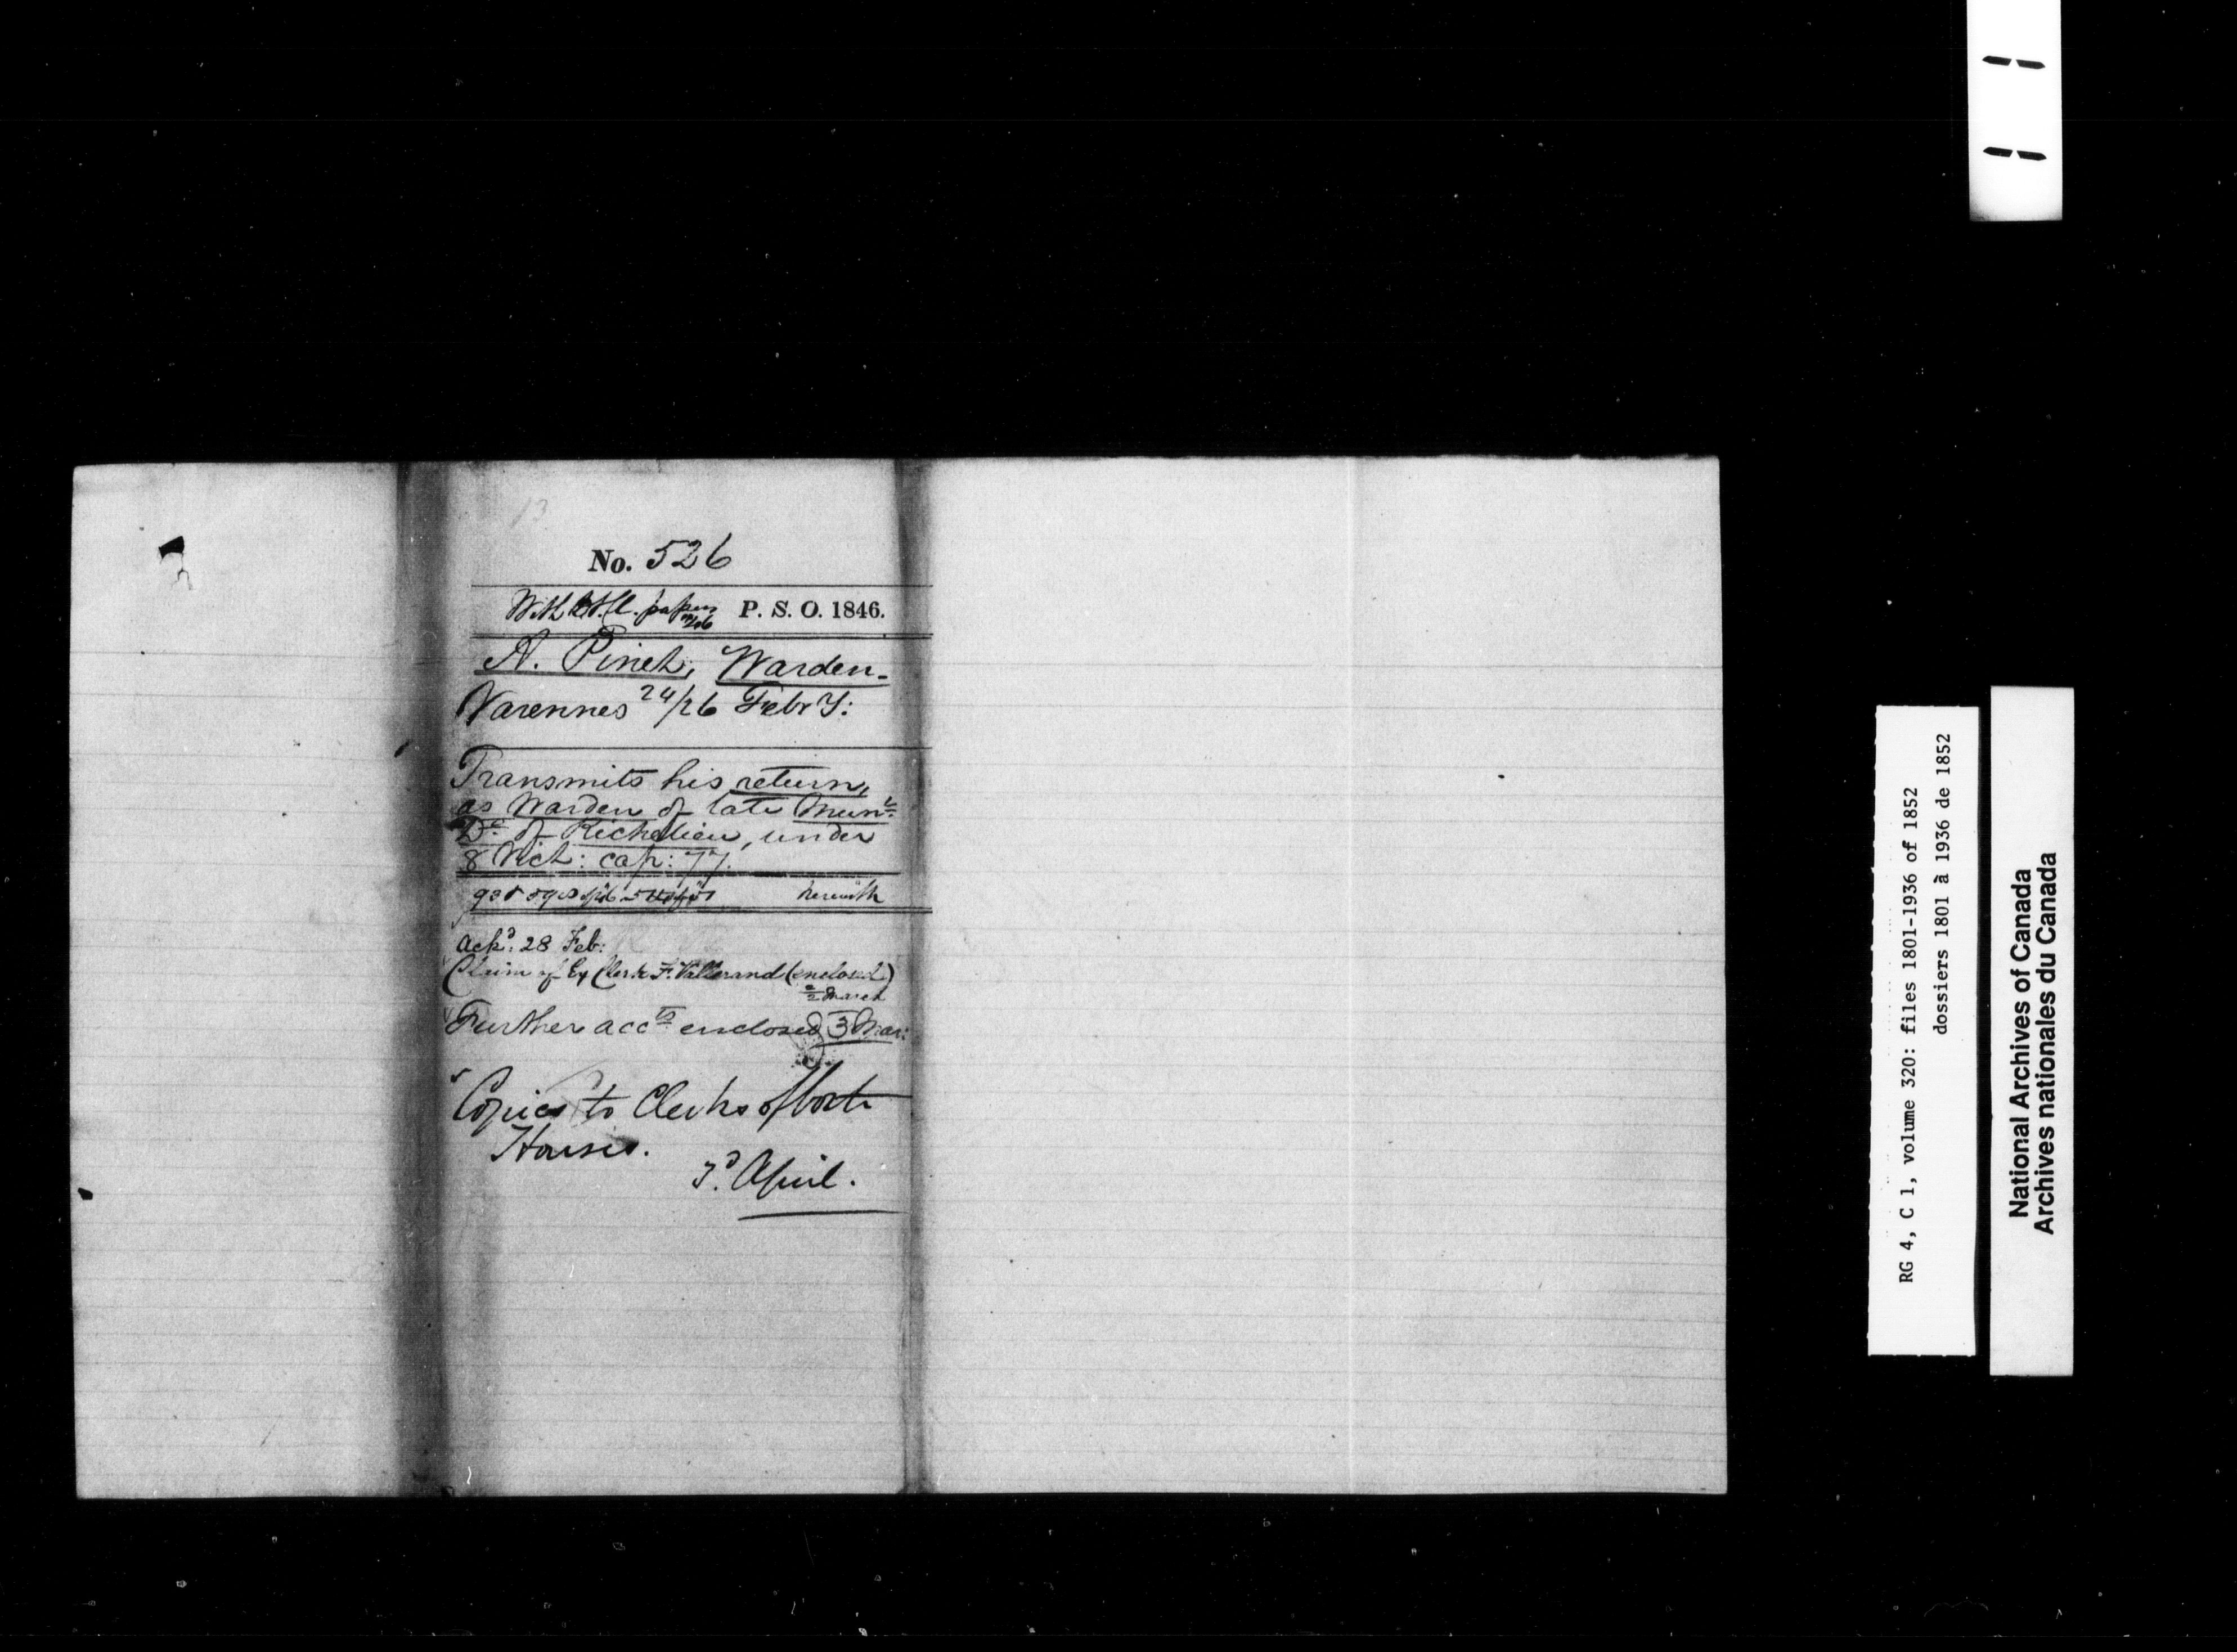 13
No. 526
With papers P. S. O. 1846.
A. Pinet, Warden-
Varennes 24/26 Febry:
Transmits his return,
as Warden of late Munl
Dt of Richelieu, under
8 Vict: cap: 77.
herewith
Ackd: 28 Feb:
Claim of Ex Clerk F. Vallerand (enclosed)
2/2 March
Further accts enclosed 3 Mar:
Copies to Clerks of both
Houses.
3d April.
RG 4, C 1, volume 320: files 1801-1936 of 1852
dossiers 1801 à 1936 de 1852
National Archives of Canada
Archives nationales du Canada